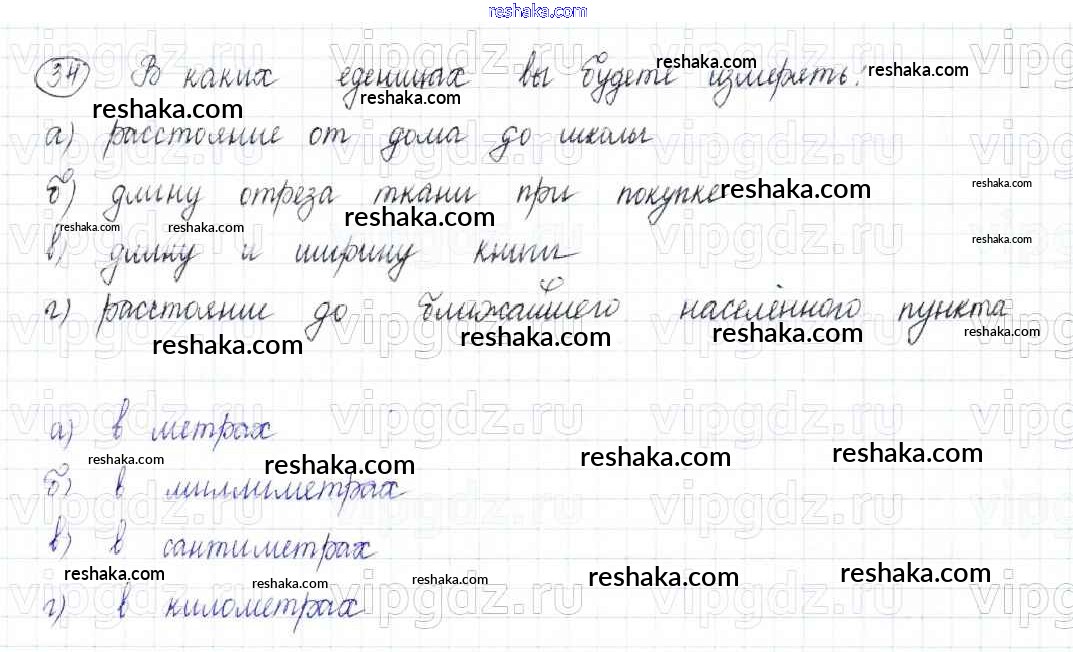 reshaka.com
34 В каких еденицах вы будете измерять:
а) расстояние от дома до школы
б) длину отреза ткани при покупке
в) длину и ширину книги
г) расстояние до ближайшего населённого пункта
а) в метрах
б) в миллиметрах
в) в сантиметрах
г) в километрах